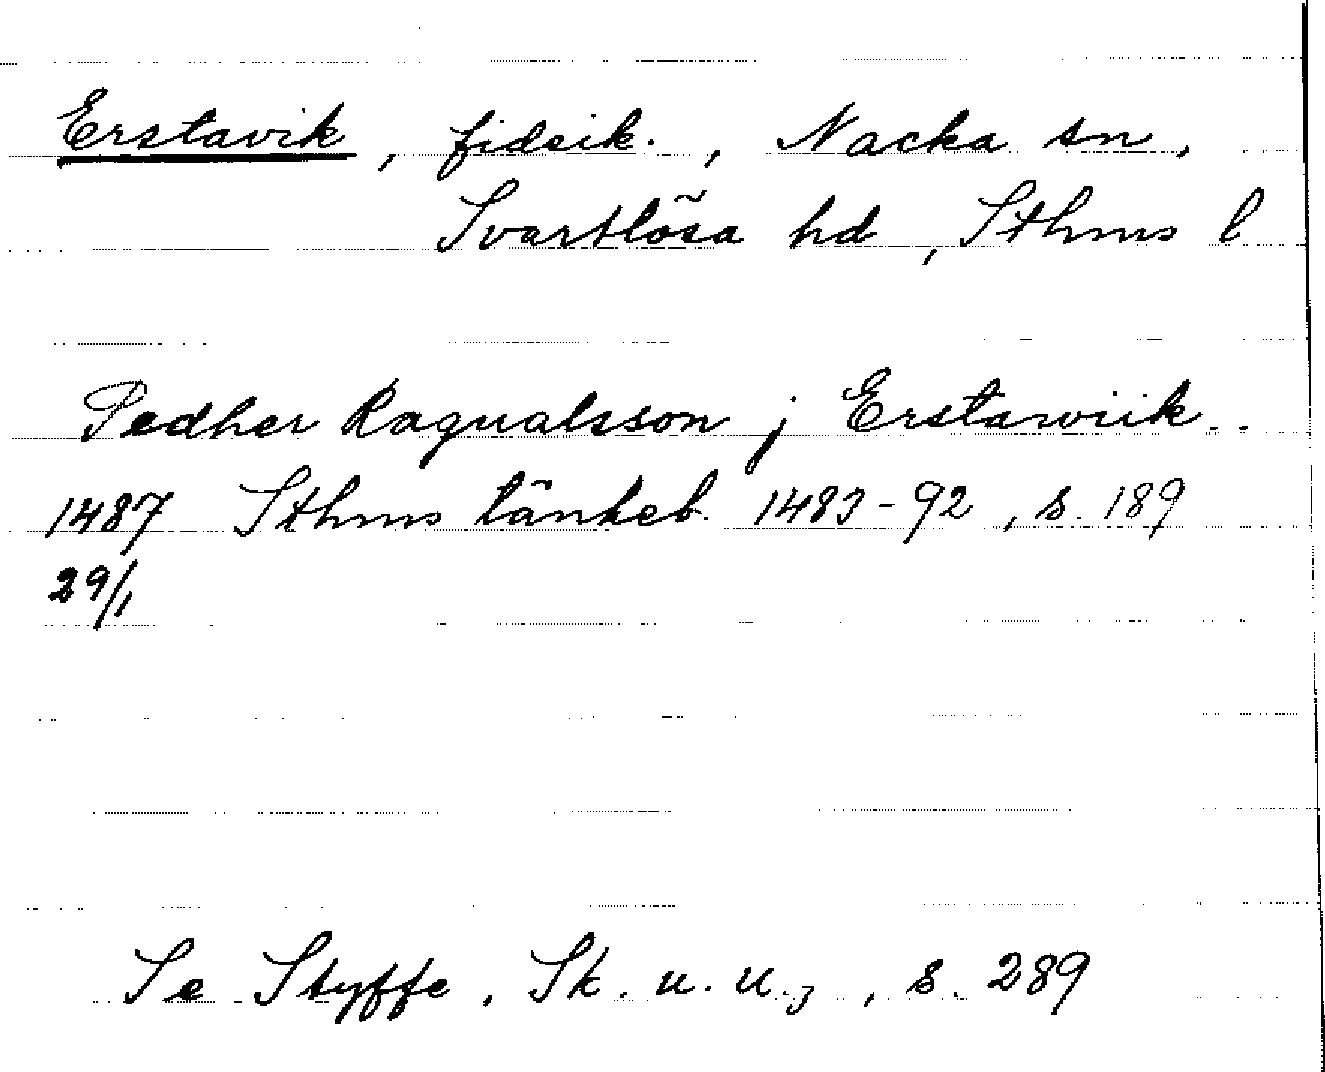 Erstavik, fideik., Nacka sn,
Svartlösa hd, Sthms l
Pedher Ragualsson j Erstawiik..
1487 Sthms tänkeb. 1483-92, s. 189
29/1
Se Styffe, Sk. u. u.z, s. 289